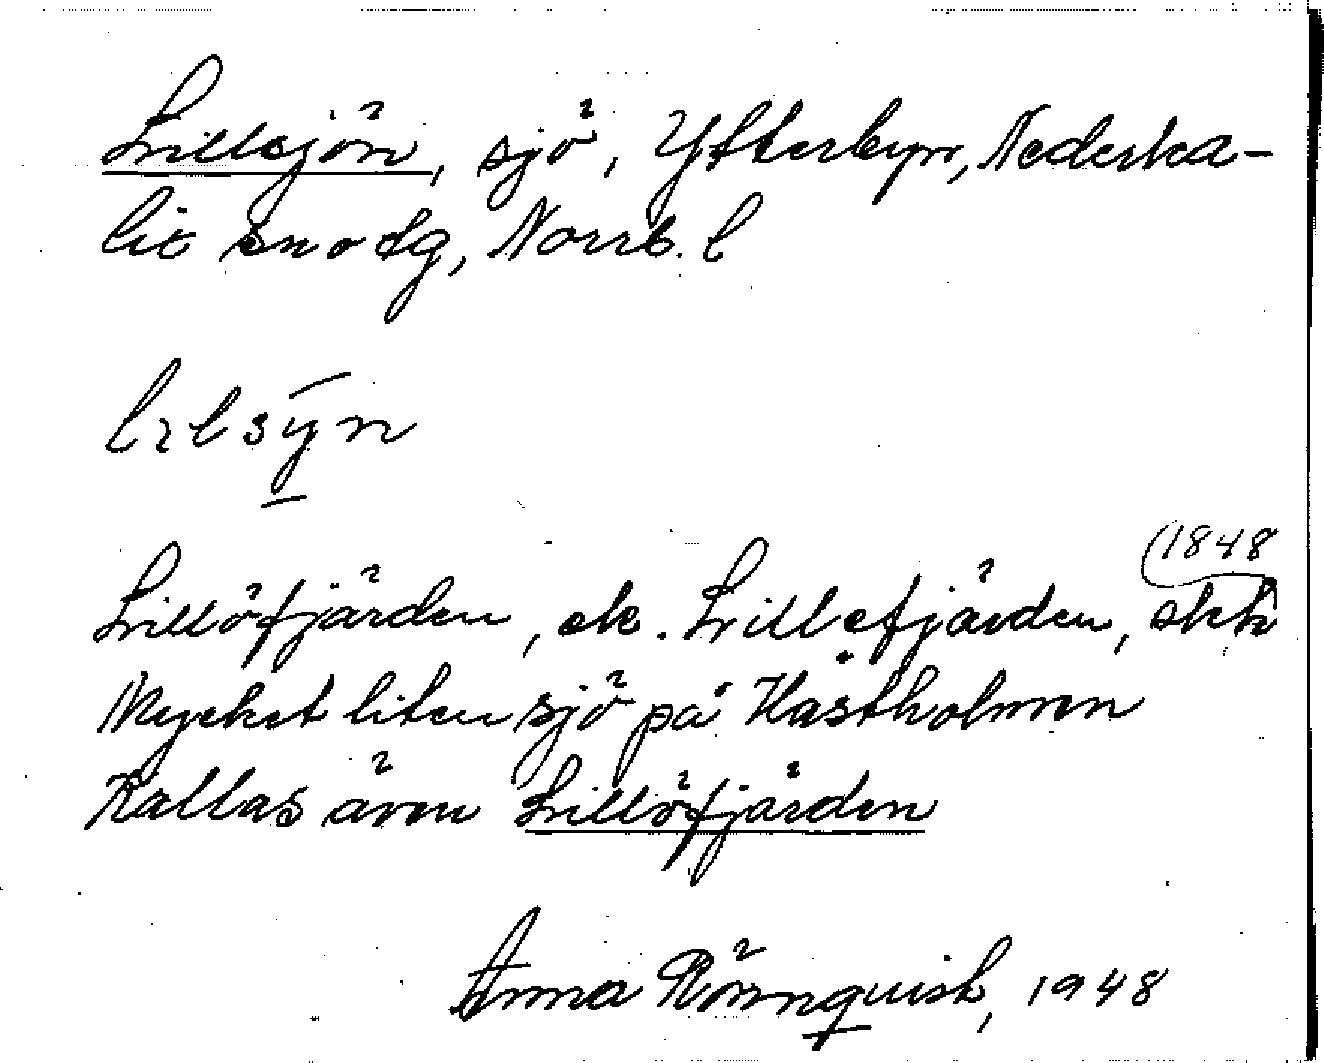 Lillsjön, sjö, Ytterbyn, Nederka-
lix sn o dg, Norrb. l
Lillöfjärden, ek. Lillefjärden, skh
(1848
Mycket liten sjö på Hästholmen
Kallas även Lillöfjärden
Anna Rönnquist, 1948